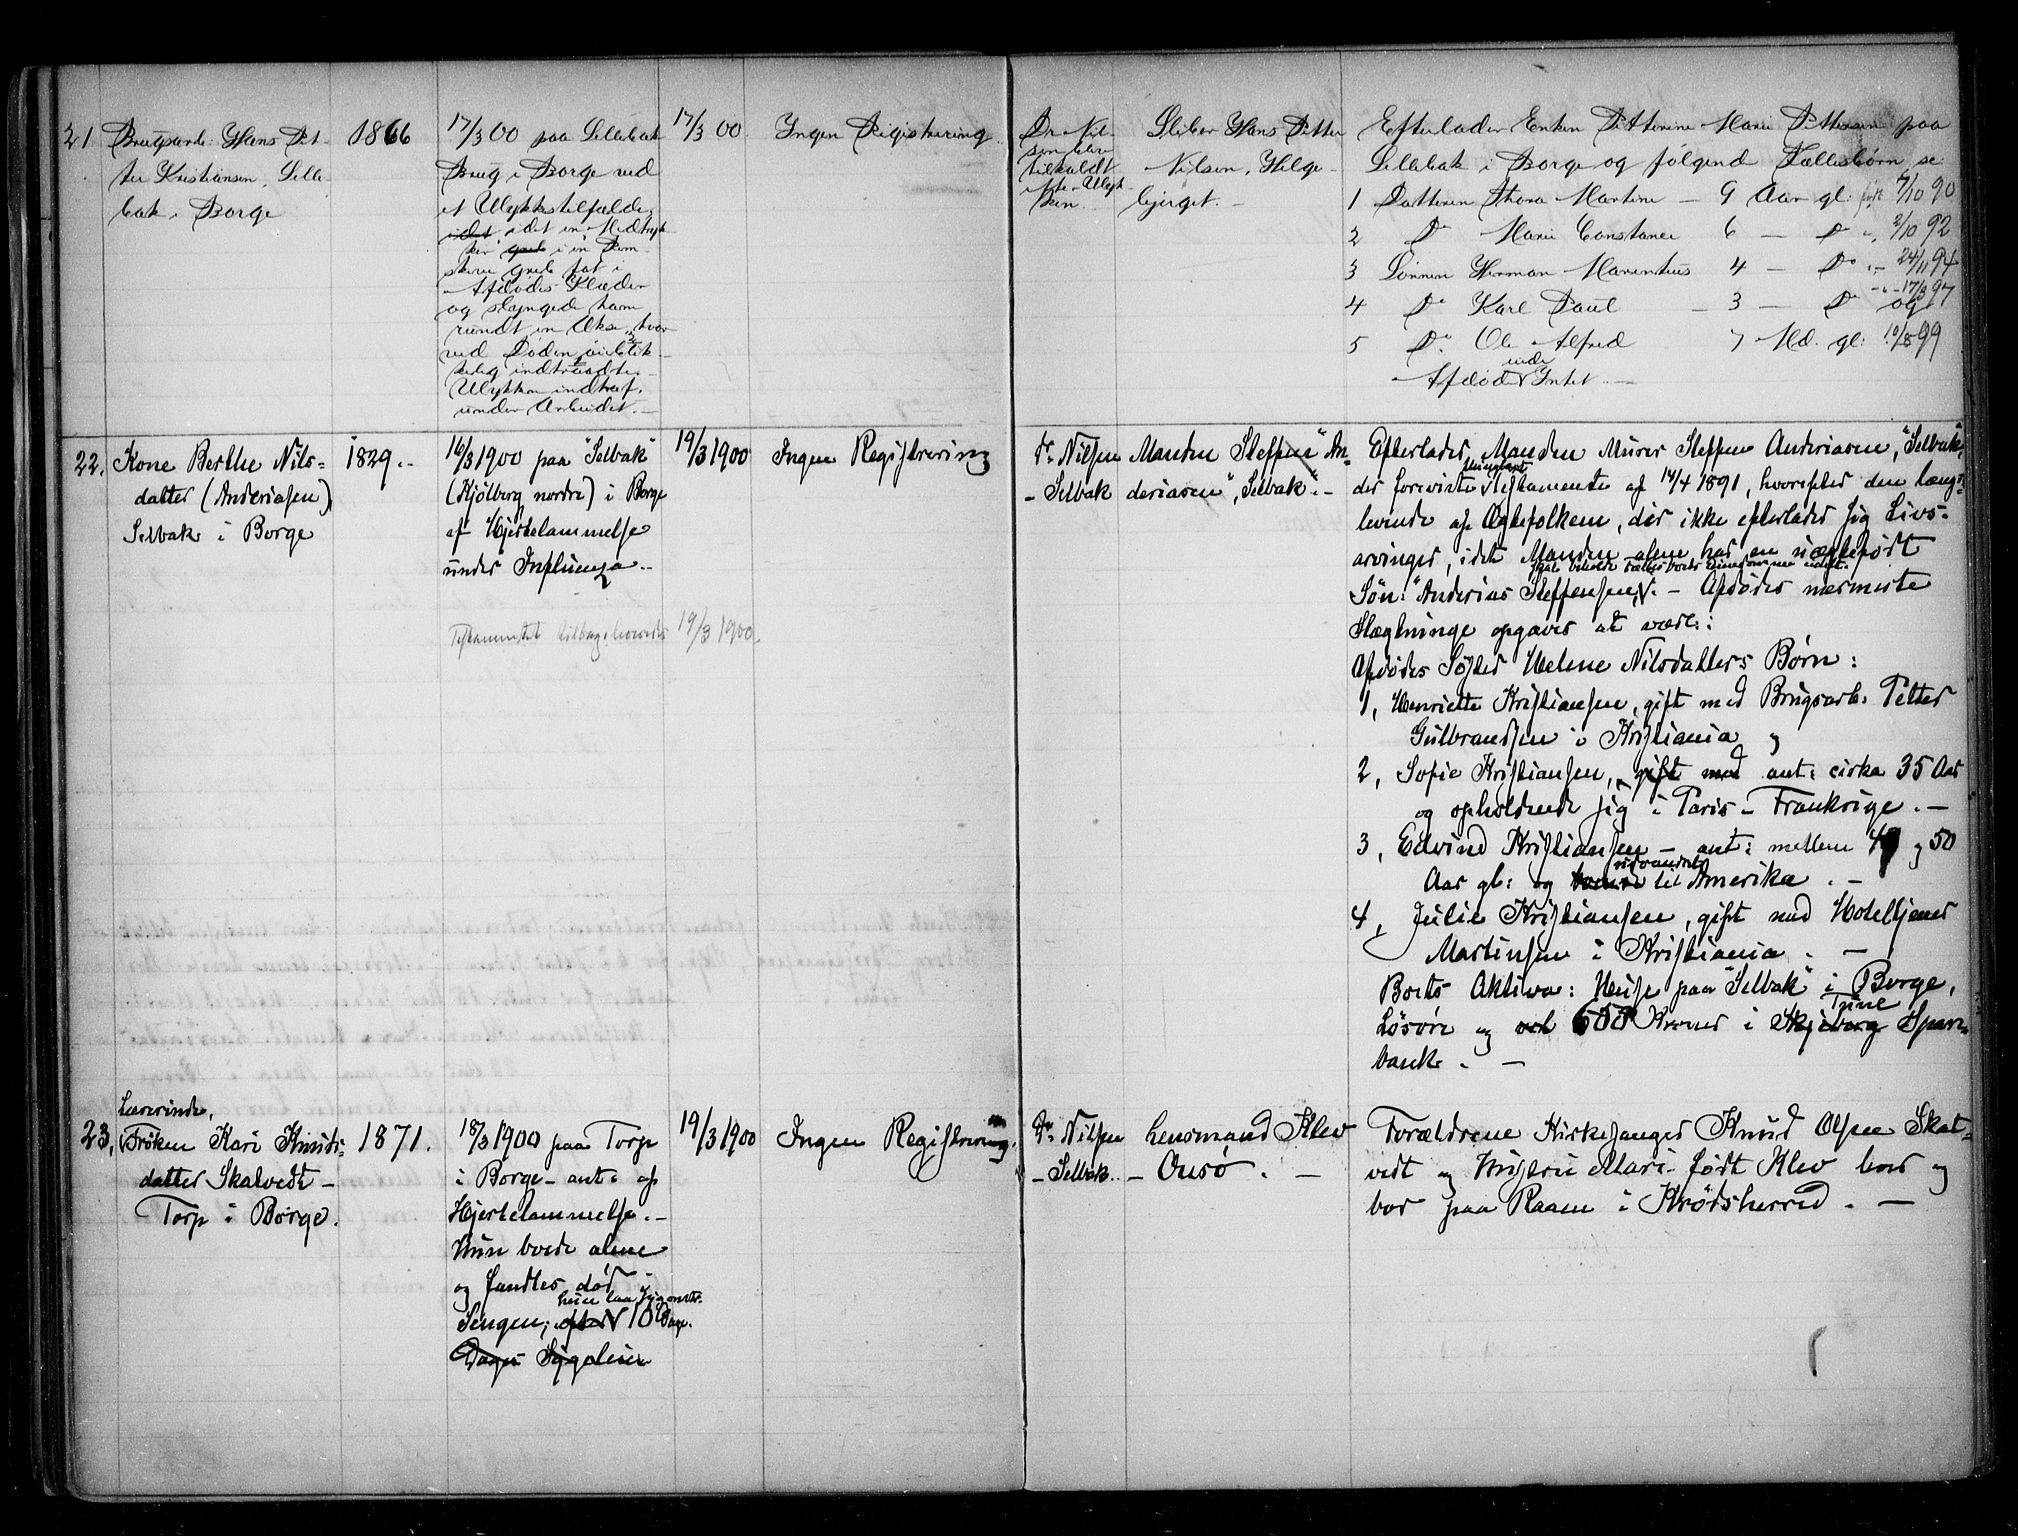 21 Brugsarb: Hans Pet-
ter Kristiansen, Selle-
bak i Borge
1866
17/3 00 paa Sellebak
Brug i Borge ved
et Ulykkestilfælde,
idet idet en Medtryk-
ker greb i en Rem-
skive greb fat i
Afdødes Klæder
og slyngede ham
rundt en Akse, hvor-
ved Døden øieblik-
kelig indtraadte.
Ulykken indtraf
under Arbeidet. —
17/3 00
Ingen Registrering.
Dr. Nil-
sen blev
tilkaldt
efter Ulyk-
ken.
Sliber Hans Petter
Nilsen, Helge-
bjerget. —
Efterlader Enken Pitterine Marie Pettersen paa
Sellebak i Borge og følgend Fællesbørn se:
1 Datteren Thora Martine — 9 Aar gl: født 7/10 90
2 Do Marie Constance 6 — Do „ 2/10 92
3 Sønnen Herman Marentius 4 — Do „ 24/11 94
4 Do Karl Paul — 3 — Do og „ 17/3 97
5 Do. Ole Alfred 7 Md. gl: 10/8 99
Afdøde eiede Intet. —
22. Kone Berthe Nils-
datter (Anderiasen)
Selbak i Borge
1829. -
16/3 1900 paa "Selbak"
(Kjølberg nordre) i Borge
af Hjertelammelse
under Influenza. -
Testamentet tilbageleveredes 19/3 1900.
19/3 1900
Ingen Registrering
Dr. Nilsen
- Selbak
Manden Steffen An-
deriasen, "Selbak". -
Efterlader Manden Murer Steffen Anderiasen, "Selbak",
der foreviste thinglæst Testamente af 14/4 1891, hvorefter den længst-
levende af Ægtefolkene, der ikke efterlader sig Livs-
arvinger, idet Manden alene har en uægtefødt
skal beholde Fællesboets Eiendomme udelt.
Søn: "Anderias Steffensen". - Afdødes nærmeste
Slægtninge opgaves at være:
Afdødes Søster Helene Nilsdatters Børn:
1, Henriette Kristiansen, gift med Brugsarb: Petter
Gulbrandsen i Kristiania og
2, Sofie Kristiansen, gift med ant: cirka 35 Aar
og opholdende sig i Paris - Frankrige. -
3, Edvind Kristiansen - ant: mellem 40 og 50
Aar gl: og udvandret til Amerika. -
4, Julie Kristiansen, gift med Hoteltjener
Martinsen i Kristiania. -
Boets Aktiva: Huse paa "Selbak" i Borge,
Løsøre og 600 Kroner i Skjeberg Tune Spare-
bank. -
Lærerinde,
23, Frøken Kari Knuds-
datter Skatvedt -
Torp i Borge.
1871.
18/3 1900 paa Torp
i Borge - ant: af
Hjertelammelse. -
Hun boede alene
og fandtes død i
Sengen; efter hun laa syg omtr. 10 Dage.
Dages Sygeleie
19/3 1900
Ingen Registrering.
Dr. Nilsen
- Selbak. -
Lensmand Klev
- Onsø. -
Forældrene Kirkesanger Knud Olsen Skat-
vedt og Hustru Mari født Klev lever og
bor paa Raaen i Krødsherred. -